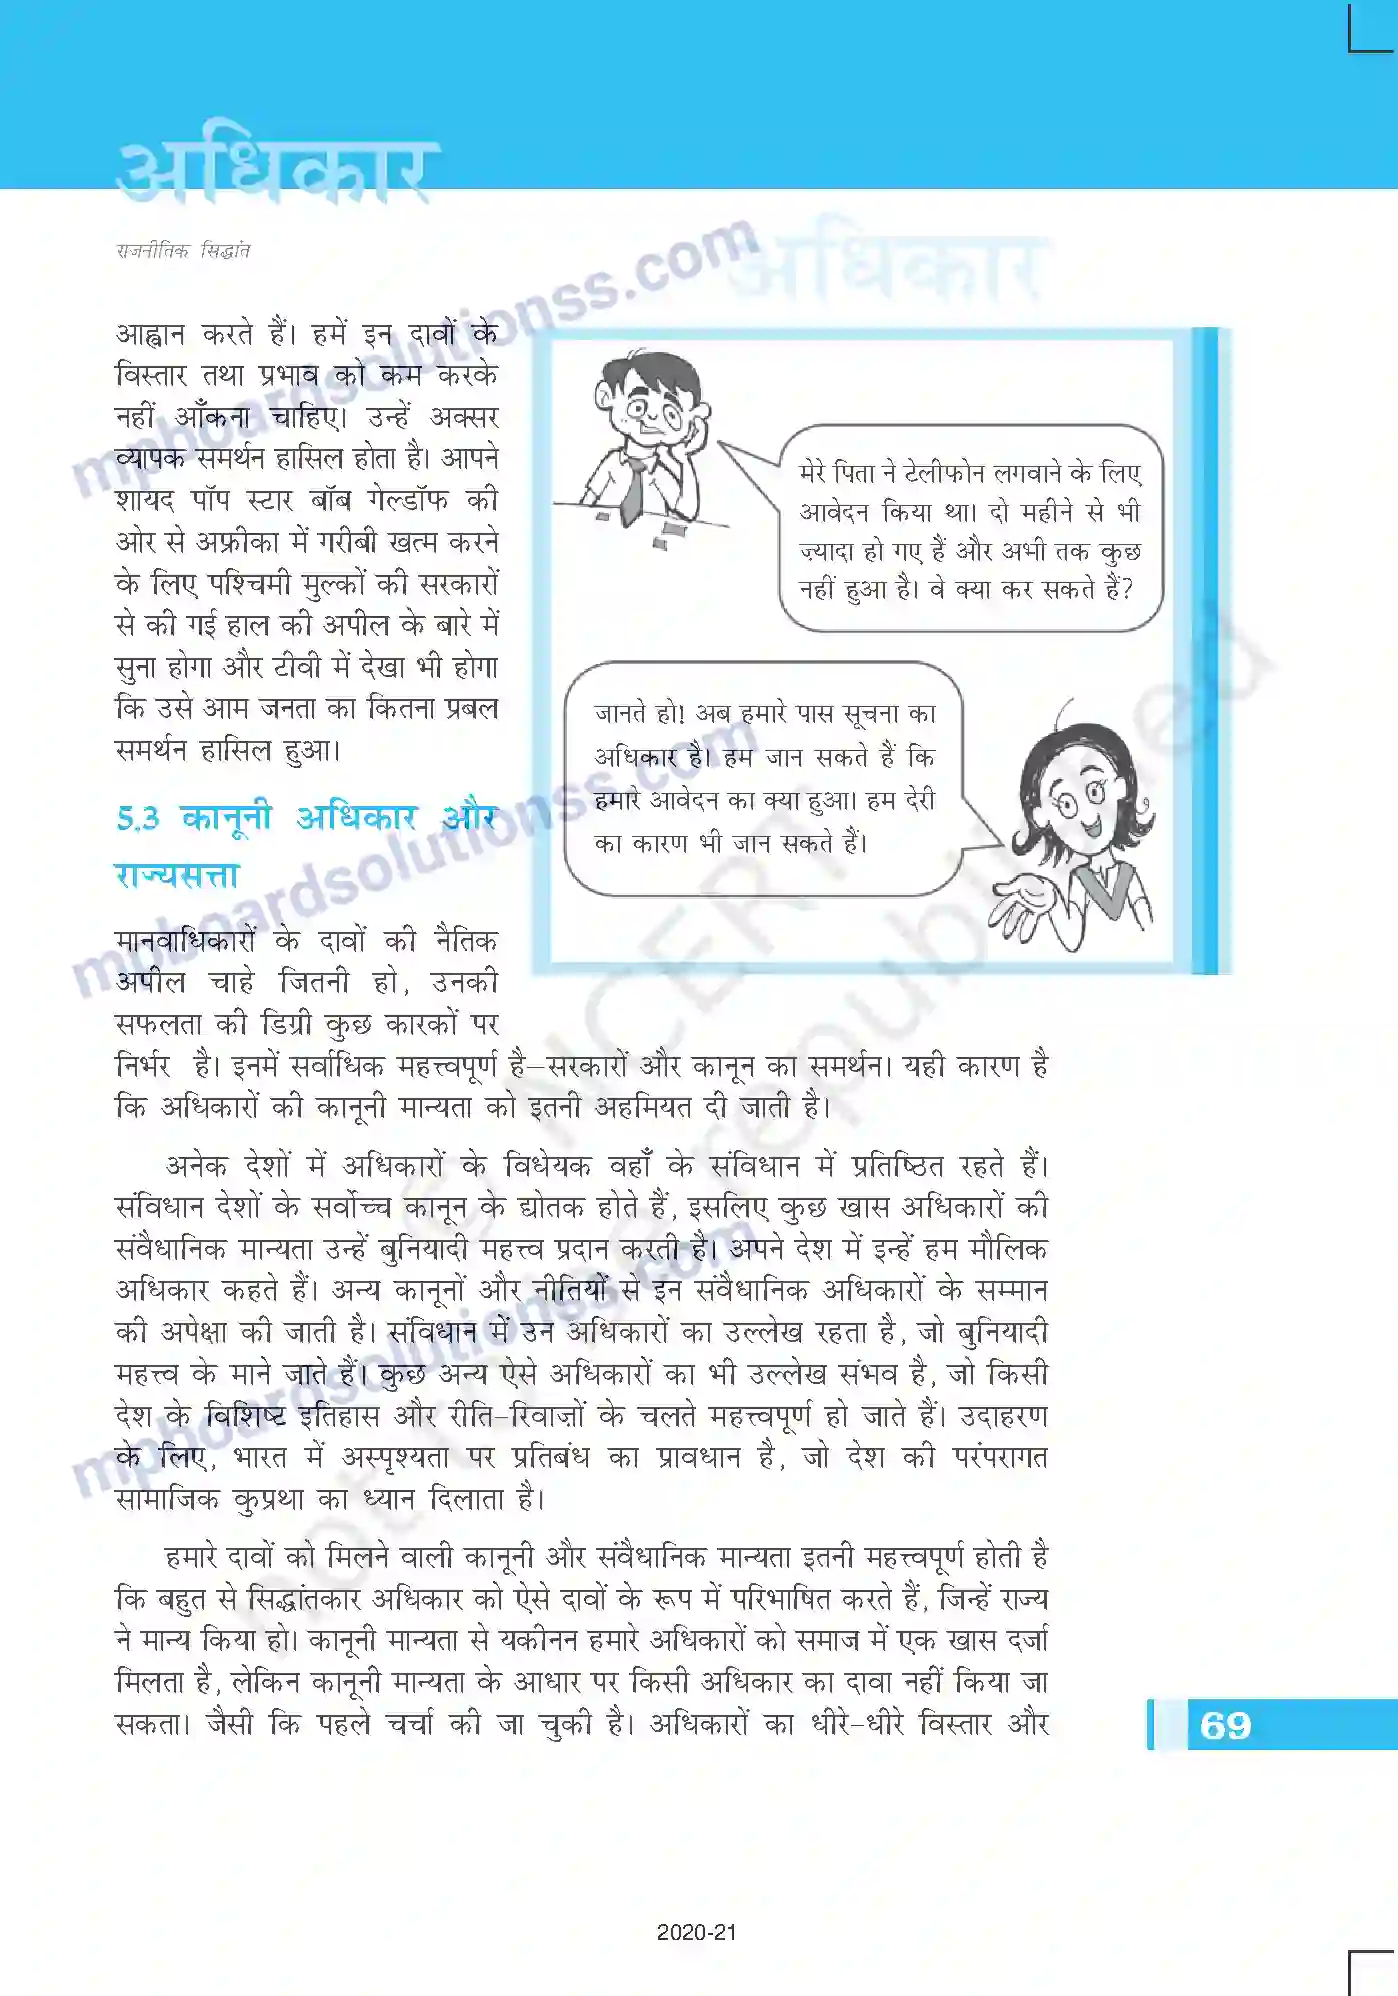 अधिकार
राजनीतिक सिद्धांत
अधिकार
आह्वान करते हैं। हमें इन दावों के
विस्तार तथा प्रभाव को कम करके
नहीं आँकना चाहिए। उन्हें अक्सर
व्यापक समर्थन हासिल होता है। आपने
शायद पॉप स्टार बॉब गेल्डॉफ की
ओर से अफ्रीका में गरीबी खत्म करने
के लिए पश्चिमी मुल्कों की सरकारों
से की गई हाल की अपील के बारे में
सुना होगा और टीवी में देखा भी होगा
कि उसे आम जनता का कितना प्रबल
समर्थन हासिल हुआ।
मेरे पिता ने टेलीफोन लगवाने के लिए
आवेदन किया था। दो महीने से भी
ज़्यादा हो गए हैं और अभी तक कुछ
नहीं हुआ है। वे क्या कर सकते हैं?
जानते हो! अब हमारे पास सूचना का
अधिकार है। हम जान सकते हैं कि
हमारे आवेदन का क्या हुआ। हम देरी
का कारण भी जान सकते हैं।
5.3 कानूनी अधिकार और
राज्यसत्ता
मानवाधिकारों के दावों की नैतिक
अपील चाहे जितनी हो, उनकी
सफलता की डिग्री कुछ कारकों पर
निर्भर है। इनमें सर्वाधिक महत्त्वपूर्ण है–सरकारों और कानून का समर्थन। यही कारण है
कि अधिकारों की कानूनी मान्यता को इतनी अहमियत दी जाती है।
अनेक देशों में अधिकारों के विधेयक वहाँ के संविधान में प्रतिष्ठित रहते हैं।
संविधान देशों के सर्वोच्च कानून के द्योतक होते हैं, इसलिए कुछ खास अधिकारों की
संवैधानिक मान्यता उन्हें बुनियादी महत्त्व प्रदान करती है। अपने देश में इन्हें हम मौलिक
अधिकार कहते हैं। अन्य कानूनों और नीतियों से इन संवैधानिक अधिकारों के सम्मान
की अपेक्षा की जाती है। संविधान में उन अधिकारों का उल्लेख रहता है, जो बुनियादी
महत्त्व के माने जाते हैं। कुछ अन्य ऐसे अधिकारों का भी उल्लेख संभव है, जो किसी
देश के विशिष्ट इतिहास और रीति-रिवाज़ों के चलते महत्त्वपूर्ण हो जाते हैं। उदाहरण
के लिए, भारत में अस्पृश्यता पर प्रतिबंध का प्रावधान है, जो देश की परंपरागत
सामाजिक कुप्रथा का ध्यान दिलाता है।
हमारे दावों को मिलने वाली कानूनी और संवैधानिक मान्यता इतनी महत्त्वपूर्ण होती है
कि बहुत से सिद्धांतकार अधिकार को ऐसे दावों के रूप में परिभाषित करते हैं, जिन्हें राज्य
ने मान्य किया हो। कानूनी मान्यता से यकीनन हमारे अधिकारों को समाज में एक खास दर्जा
मिलता है, लेकिन कानूनी मान्यता के आधार पर किसी अधिकार का दावा नहीं किया जा
सकता। जैसी कि पहले चर्चा की जा चुकी है। अधिकारों का धीरे-धीरे विस्तार और
69
2020-21
mpboardsolutionss.com
mpboardsolutionss.com
mpboardsolutionss.com
© NCERT
not to be republished